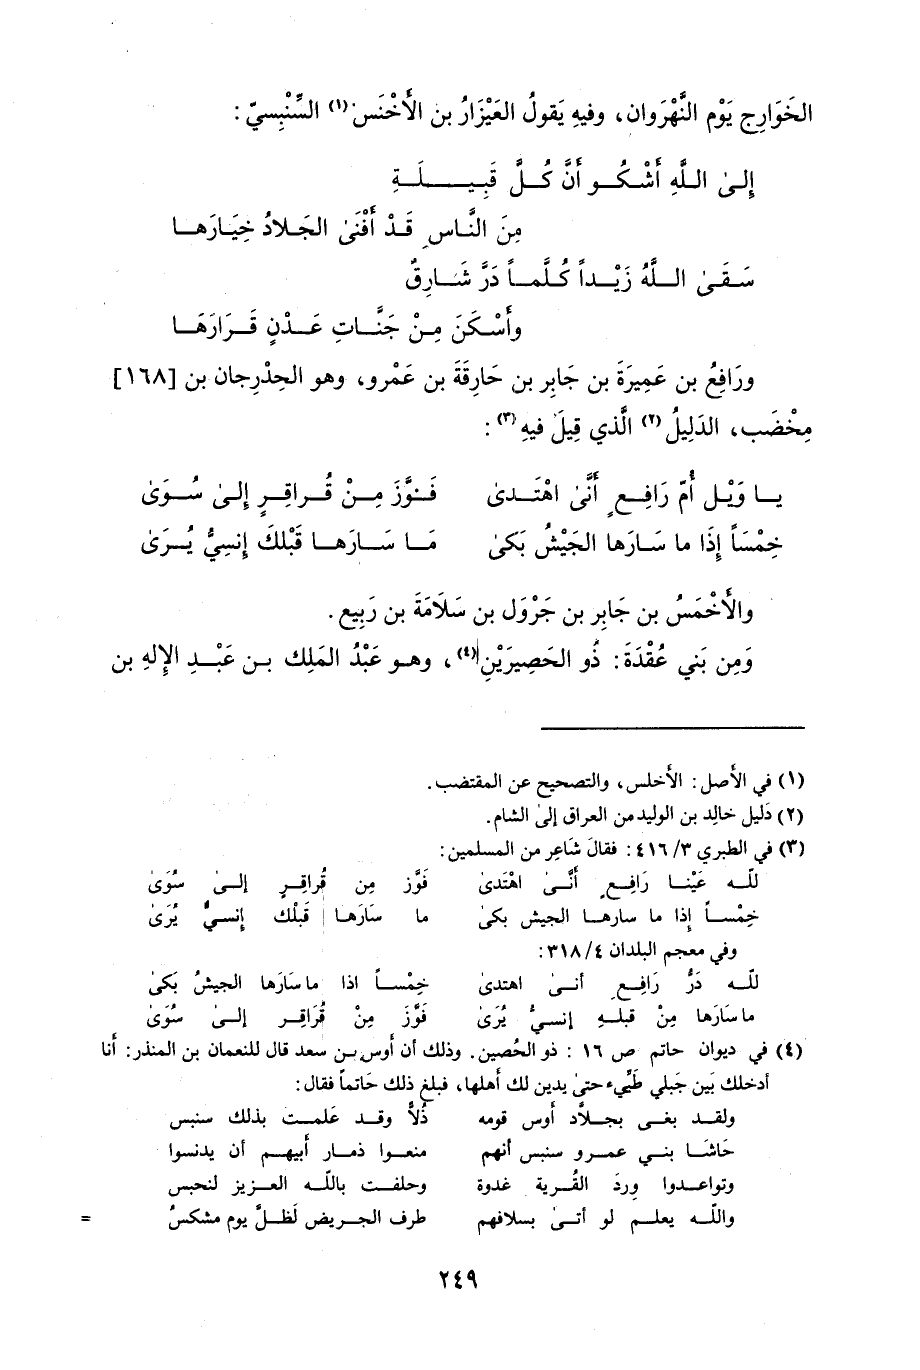 الخَوَارِج يَوْم النَّهْرَوان، وفيه يَقولُ العَيْزَارُ بن الأَخْنَس(١) السِّنْبِسيّ:
إِلىٰ اللَّهِ أَشْكُو أَنَّ كُلَّ قَبِيلَةٍ
مِنَ النَّاسِ قَدْ أَفْنَىٰ الجَلادُ خِيَارَها
سَقَىٰ اللَّهُ زَيْداً كُلَّماً ذَرَّ شَارِقٌ
وأَسْكَنَ مِنْ جَنَّاتِ عَدْنٍ قَرَارَهَا
ورَافِعُ بن عَمِيرَةَ بن جَابِر بن حَارِقَةَ بن عَمْرو، وهو الحِدْرِجان بن [١٦٨]
مِخْضَب، الدَلِيلُ(٢) الَّذي قِيلَ فيهِ(٣):
يا وَيْل أُمّ رَافِعٍ أَنَّىٰ اهْتَدىٰ فَوَّزَ مِنْ قُراقِرٍ إِلىٰ سُوَىٰ
خِمْسَاً إِذَا ما سَارَها الجَيْشُ بَكىٰ مَا سَارَها قَبْلَكَ إِنسِيٌّ يُرَىٰ
والأَخْمَسُ بن جَابِر بن جَرْوَل بن سَلَامَةَ بن رَبِيع.
وَمِن بَني عُقْدَةَ: ذُو الحَصِيرَيْنِ(٤)، وهو عَبْدُ المَلِك بن عَبْدِ الإلهِ بن
(١) في الأصل: الأخلس، والتصحيح عن المقتضب.
(٢) دَليل خالِد بن الوليد من العراق إلىٰ الشام.
(٣) في الطبري ٤١٦/٣: فقالَ شَاعِر من المسلمين:
للّه عَيْنا رَافِعٍ أَنَّىٰ اهْتَدىٰ فَوَّز مِن قُراقِرٍ إلىٰ سُوَىٰ
خِمْساً إِذا ما سارها الجيش بكىٰ ما سَارَها قَبْلَك إِنسيٌّ يُرَىٰ
وفي معجم البلدان ٣١٨/٤:
للّه دَرُّ رَافِعٍ أنىٰ اهتدىٰ خِمْساً اذا ما سَارَها الجيشُ بَكىٰ
ما سَارَها مِنْ قبلهِ إنسيٌّ يُرَىٰ فَوَّزَ مِنْ قُرَاقِر إلىٰ سُوَىٰ
(٤) في ديوان حاتم ص ١٦: ذو الحُصين. وذلك أن أوس بن سعد قال للنعمان بن المنذر: أنا
أدخلك بَين جَبلي طَيِّء حتىٰ يدين لك أهلها، فبلغ ذلك حَاتماً فقال:
ولقد بغىٰ بجلاَّد أَوس قومه ذُلاًّ وقد عَلمت بذلك سنبس
حَاشَا بني عمرو سنبس أنهم منعوا ذمار أَبيهم أن يدنسوا
وتواعدوا وردَ القُرية غدوة وحلفت باللّه العزيز لنحبس
واللّه يعلم لو أتىٰ بسلافهم طرف الجريض لَظلَّ يوم مشكسُ
=
٢٤٩